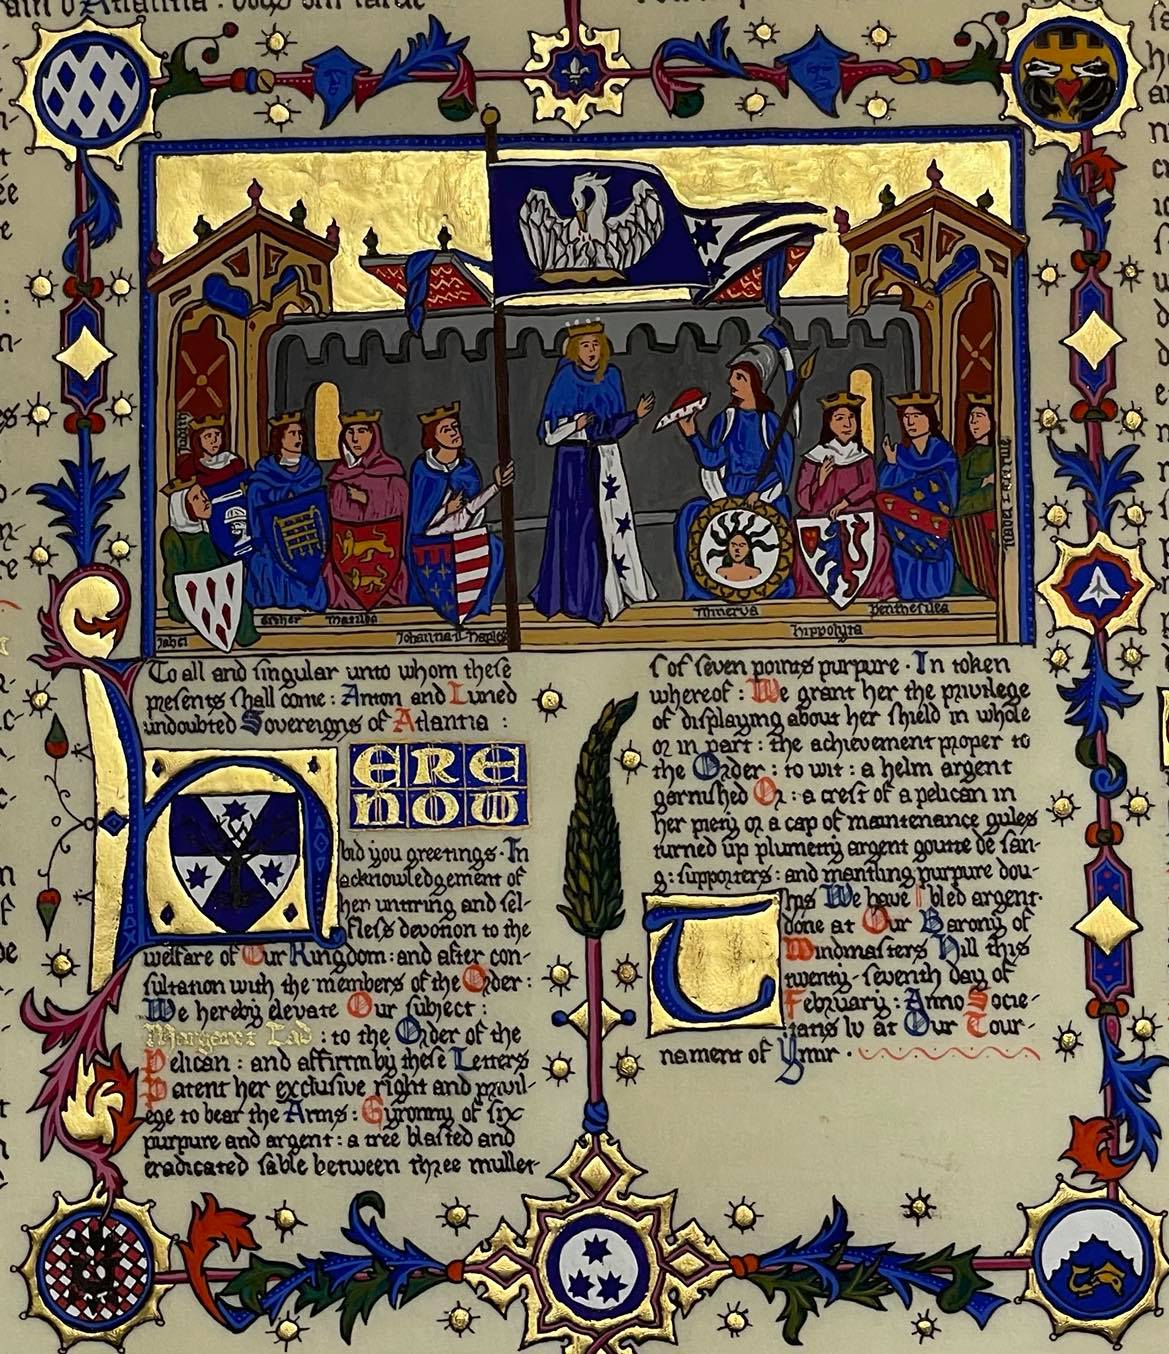 Judith
Jahel
Esther
Matilda
Johanna II Naples
Minerva
Hippolyta
Penthesilea
To all and singular unto whom these
presents shall come : Anton and Luned
undoubted Sovereigns of Atlantia :
HERE
NOW
bid you greetings · In
acknowledgement of
her untiring and sel-
fless devotion to the
welfare of Our Kingdom : and after con-
sultation with the members of the Order :
We hereby elevate Our subject :
Margaret Lad : to the Order of the
Pelican : and affirm by these Letters
Patent her exclusive right and privil-
ege to bear the Arms : Gyronny of six
purpure and argent : a tree blasted and
eradicated sable between three mullet-
s of seven points purpure · In token
whereof : We grant her the privilege
of displaying about her shield in whole
or in part : the achievement proper to
the Order : to wit : a helm argent
garnished Or : a crest of a pelican in
her piety or a cap of maintenance gules
turned up plumetty argent goutte de san-
g : supporters : and mantling purpure dou-
bled argent ·
This We have
done at Our Barony of
Windmasters Hill this
twenty-seventh day of
February : Anno Socie-
tatis lv at Our Tour-
nament of Ymir ·